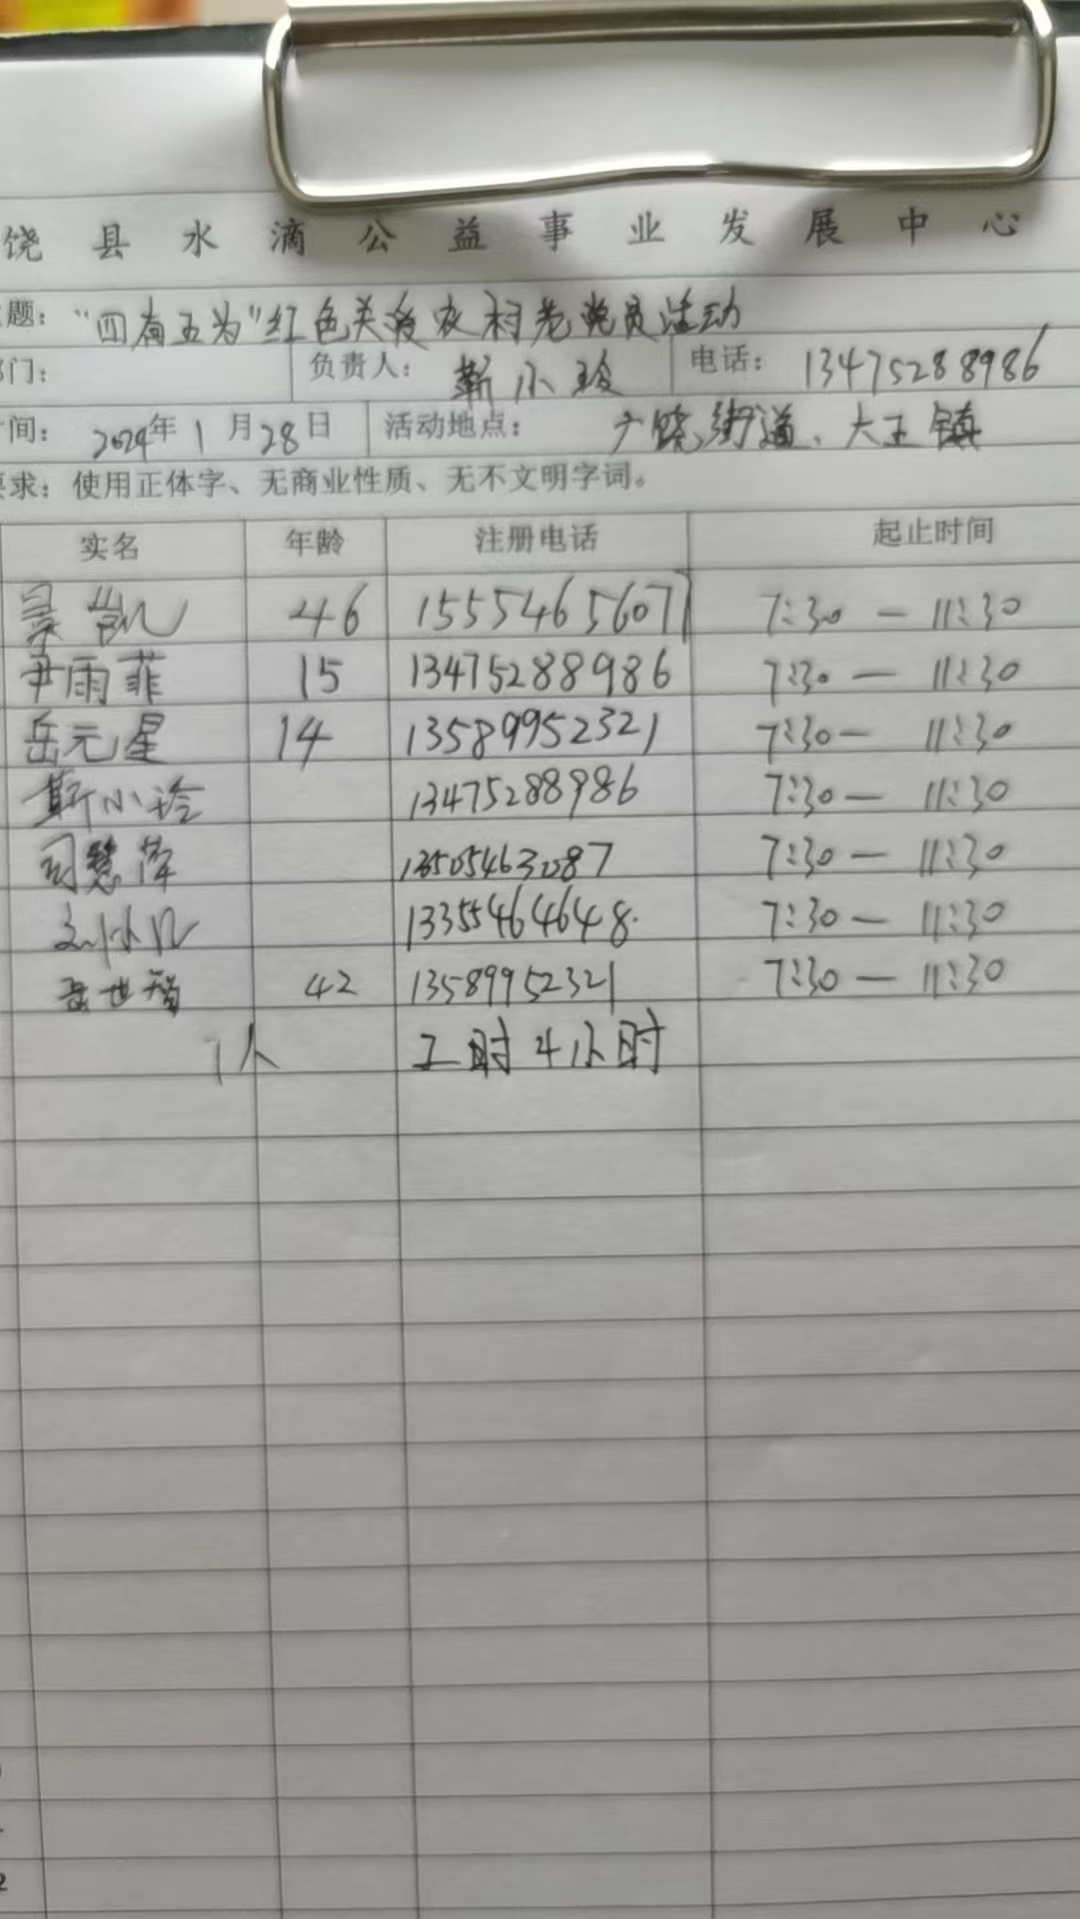 饶县水滴公益事业发展中心
题：“四有五为”红色关爱农村老党员活动
门： 负责人： 靳小玲 电话： 13475288986
间： 2024年1月28日 活动地点： 广饶街道、大王镇
求：使用正体字、无商业性质、无不文明字词。
实名 年龄 注册电话 起止时间
46 15554656071 7:30 — 11:30
尹雨菲 15 13475288986 7:30 — 11:30
岳元星 14 13589952321 7:30 — 11:30
靳小玲 13475288986 7:30 — 11:30
司慧萍 13505463087 7:30 — 11:30
13355464648 7:30 — 11:30
岳世智 42 13589952321 7:30 — 11:30
7人 工时4小时